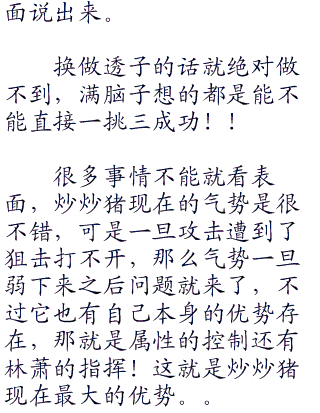 面说出来。
换做透子的话就绝对做
不到，满脑子想的都是能不
能直接一挑三成功！！
很多事情不能就看表
面，炒炒猪现在的气势是很
不错，可是一旦攻击遭到了
狙击打不开，那么气势一旦
弱下来之后问题就来了，不
过它也有自己本身的优势存
在，那就是属性的控制还有
林萧的指挥！这就是炒炒猪
现在最大的优势。。